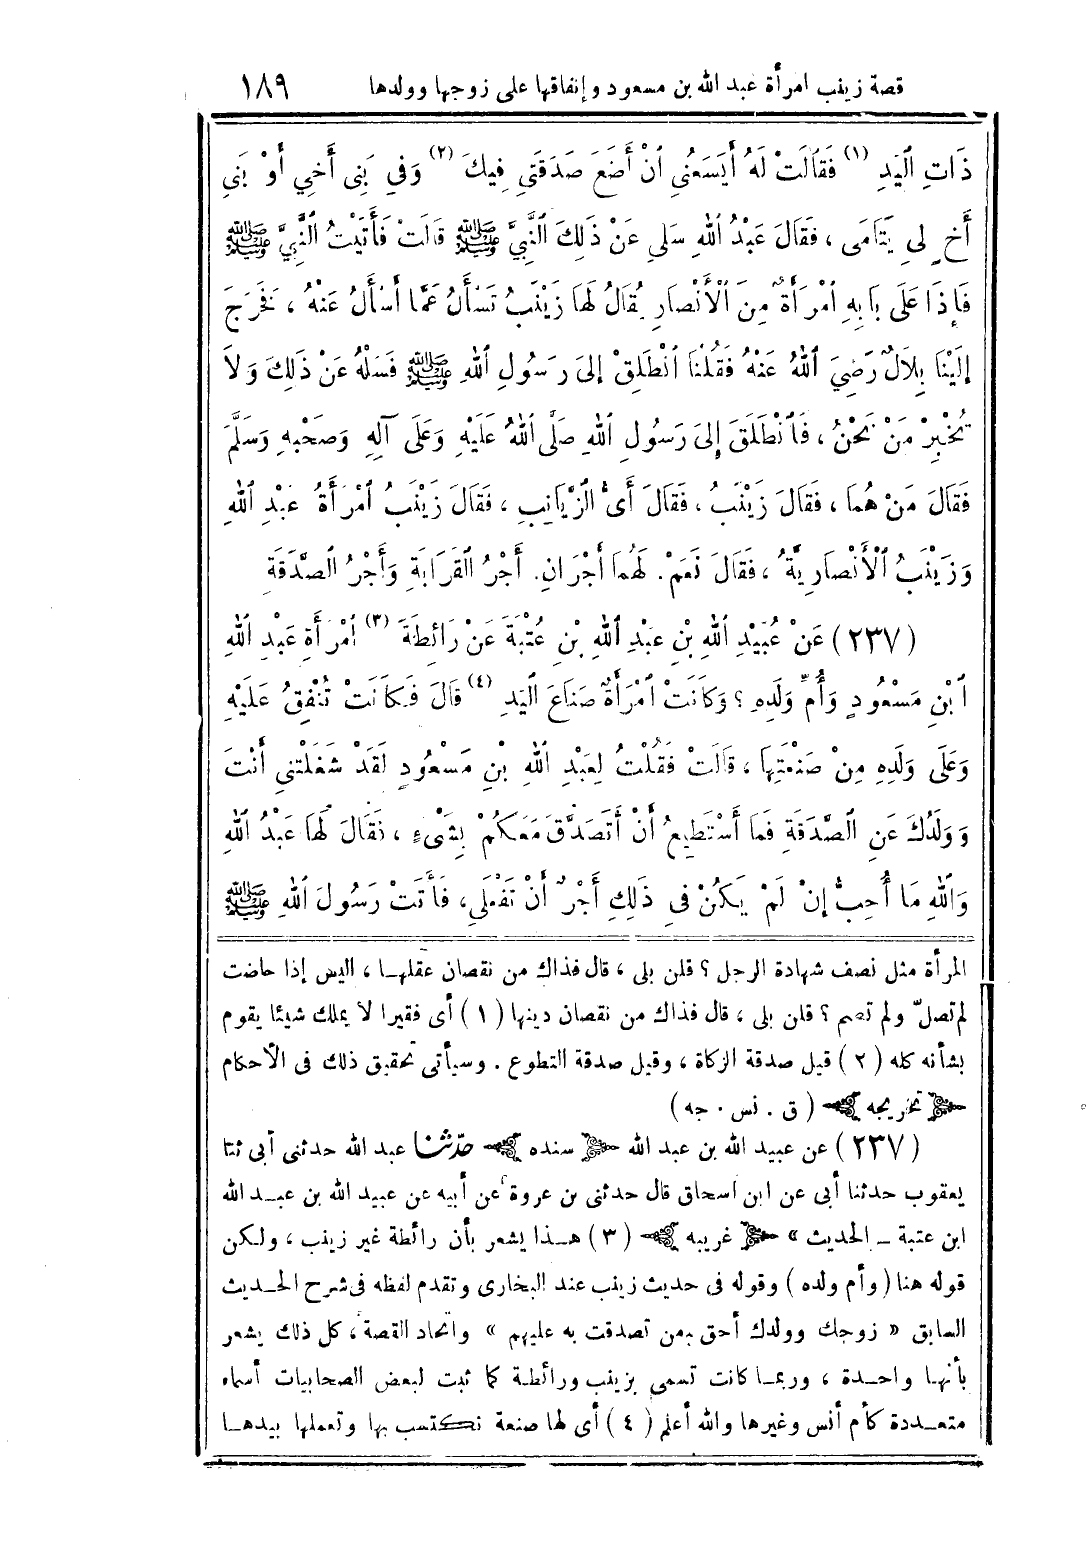 قصة زينب امرأة عبد الله بن مسعود وإنفاقها على زوجها وولدها ١٨٩
ذَاتِ الْيَدِ (١) فَقَالَتْ لَهُ أَيَسَعُنِي أَنْ أَضَعَ صَدَقَتِي فِيكَ (٢) وَفِي بَنِي أَخِي أَوْ بَنِي
أَخٍ لِي يَتَامَى ، فَقَالَ عَبْدُ اللهِ سَلِي عَنْ ذَلِكَ النَّبِيَّ ﷺ قَالَتْ فَأَتَيْتُ النَّبِيَّ ﷺ
فَإِذَا عَلَى بَابِهِ امْرَأَةٌ مِنَ الْأَنْصَارِ يُقَالُ لَهَا زَيْنَبُ تَسْأَلُ عَمَّا أَسْأَلُ عَنْهُ ، فَخَرَجَ
إِلَيْنَا بِلَالٌ رَضِيَ اللهُ عَنْهُ فَقُلْنَا انْطَلِقْ إِلَى رَسُولِ اللهِ ﷺ فَسَلْهُ عَنْ ذَلِكَ وَلَا
تُخْبِرْ مَنْ نَحْنُ ، فَانْطَلَقَ إِلَى رَسُولِ اللهِ صَلَّى اللهُ عَلَيْهِ وَعَلَى آلِهِ وَصَحْبِهِ وَسَلَّمَ
فَقَالَ مَنْ هُمَا ، فَقَالَ زَيْنَبُ ، فَقَالَ أَىُّ الزَّيَانِبِ ، فَقَالَ زَيْنَبُ امْرَأَةُ عَبْدِ اللهِ
وَزَيْنَبُ الْأَنْصَارِيَّةُ ، فَقَالَ نَعَمْ . لَهُمَا أَجْرَانِ . أَجْرُ الْقَرَابَةِ وَأَجْرُ الصَّدَقَةِ
(٢٣٧) عَنْ عُبَيْدِ اللهِ بْنِ عَبْدِ اللهِ بْنِ عُتْبَةَ عَنْ رَائِطَةَ (٣) امْرَأَةِ عَبْدِ اللهِ
ابْنِ مَسْعُودٍ وَأُمِّ وَلَدِهِ ؟ وَكَانَتْ امْرَأَةً صَنَاعَ الْيَدِ (٤) قَالَ فَكَانَتْ تُنْفِقُ عَلَيْهِ
وَعَلَى وَلَدِهِ مِنْ صَنْعَتِهَا ، قَالَتْ فَقُلْتُ لِعَبْدِ اللهِ بْنِ مَسْعُودٍ لَقَدْ شَغَلْتَنِي أَنْتَ
وَوَلَدُكَ عَنِ الصَّدَقَةِ فَمَا أَسْتَطِيعُ أَنْ أَتَصَدَّقَ مَعَكُمْ بِشَىْءٍ ، فَقَالَ لَهَا عَبْدُ اللهِ
وَاللهِ مَا أُحِبُّ إِنْ لَمْ يَكُنْ فِي ذَلِكِ أَجْرٌ أَنْ تَفْعَلِي ، فَأَتَتْ رَسُولَ اللهِ ﷺ
المرأة مثل نصف شهادة الرجل ؟ قلن بلى ، قال فذاك من نقصان عقلهـا ، اليس إذا حاضت
لم تصلّ ولم تصم ؟ قلن بلى ، قال فذاك من نقصان دينها (١) أى فقيرا لا يملك شيئا يقوم
بشأنه كله (٢) قيل صدقة الزكاة ، وقيل صدقة التطوع . وسيأتى تحقيق ذلك فى الأحكام
تخريجه (ق . نس . جه)
(٢٣٧) عن عبيد الله بن عبد الله سنده حدّثنا عبد الله حدثنى أبى ثنا
يعقوب حدثنا أبى عن ابن اسحاق قال حدثنى بن عروة عن أبيه عن عبيد الله بن عبـد الله
ابن عتبة ـ الحديث » غريبه (٣) هـذا يشعر بأن رائطة غير زينب ، ولـكن
قوله هنا (وأم ولده) وقوله فى حديث زينب عند البخارى وتقدم لفظه فى شرح الحـديث
السابق « زوجك وولدك أحق بمن تصدقت به عليهم » واتحاد القصة ، كل ذلك يشعر
بأنهـا واحـدة ، وربمـا كانت تسمى بزينب ورائطة كما ثبت لبعض الصحابيات أسماء
متعـددة كأم أنس وغيرها والله أعلم (٤) أى لها صنعة تكتسب بها وتعملها بيدهـا